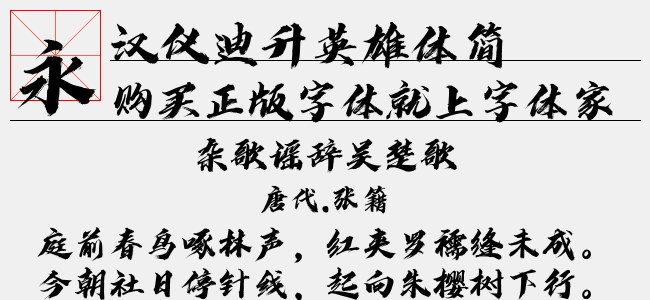 永
汉仪迪升英雄体简
购买正版字体就上字体家
杂歌谣辞吴楚歌
唐代.张籍
庭前春鸟啄林声，红夹罗襦缝未成。
今朝社日停针线，起向朱樱树下行。